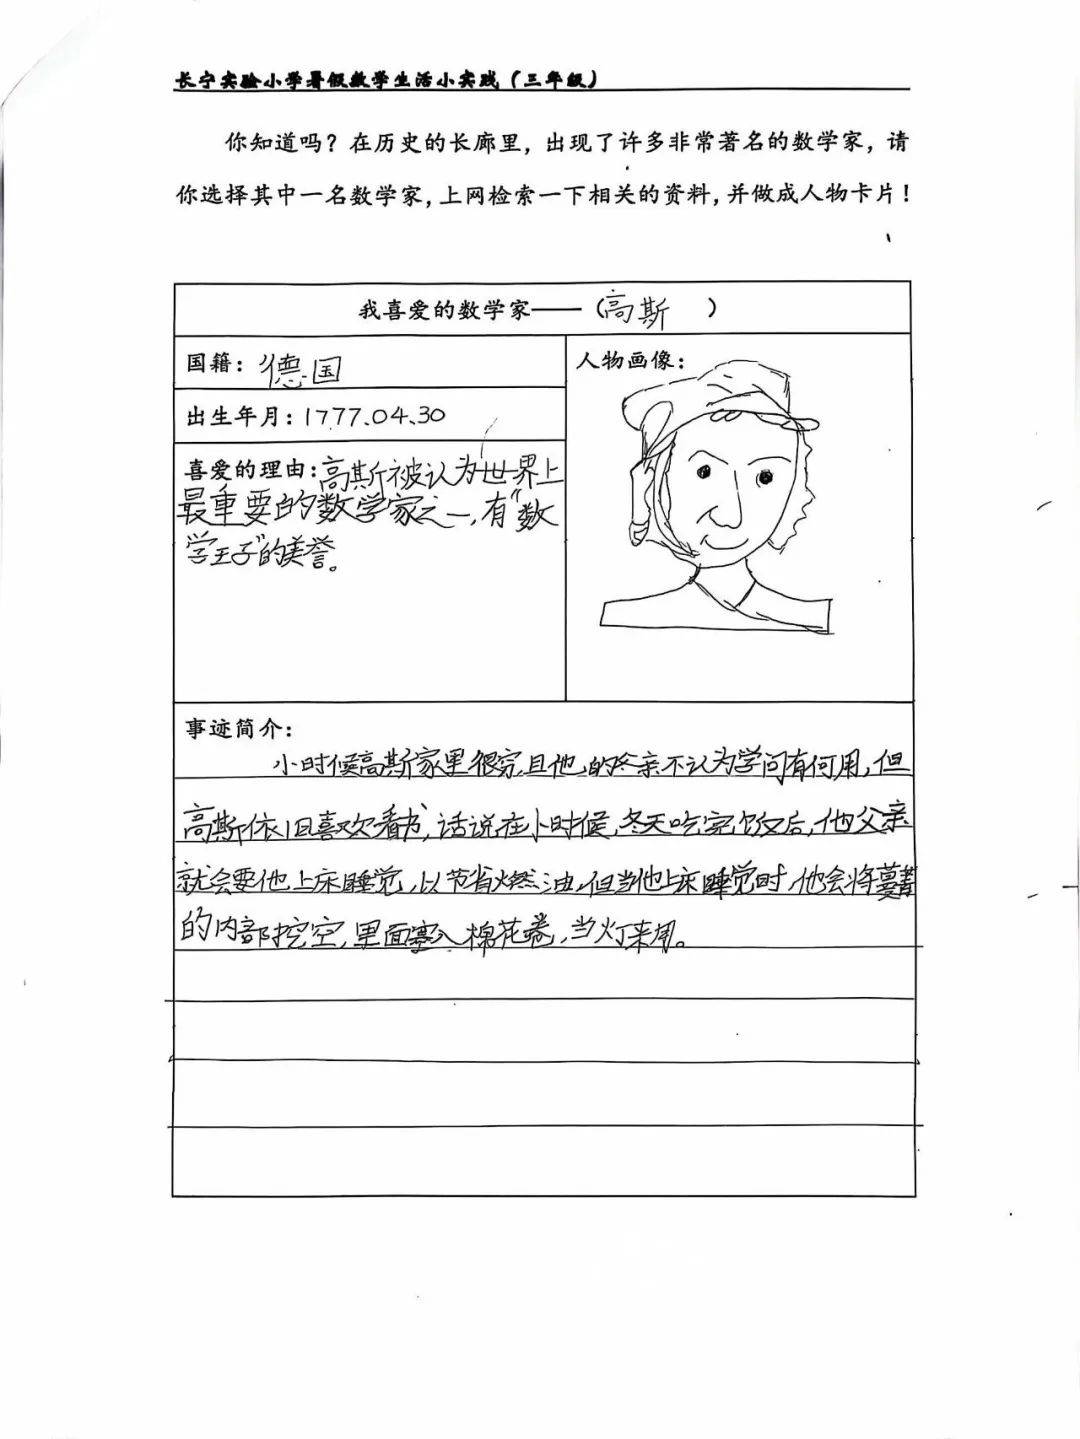 长宁实验小学暑假数学生活小实践（三年级）
你知道吗？在历史的长廊里，出现了许多非常著名的数学家，请
你选择其中一名数学家，上网检索一下相关的资料，并做成人物卡片！
我喜爱的数学家——（高斯）
国籍：德国
人物画像：
出生年月：1777.04.30
喜爱的理由：高斯被认为世界上
最重要的数学家之一，有“数
学王子”的美誉。
事迹简介：
小时候高斯家里很穷，且他的父亲不认为学问有何用，但
高斯依旧喜欢看书，话说在小时候，冬天吃完饭后，他父亲
就会要他上床睡觉，以节省燃油，但当他上床睡觉时，他会将蔓菁
的内部挖空，里面塞入棉花卷，当灯来用。